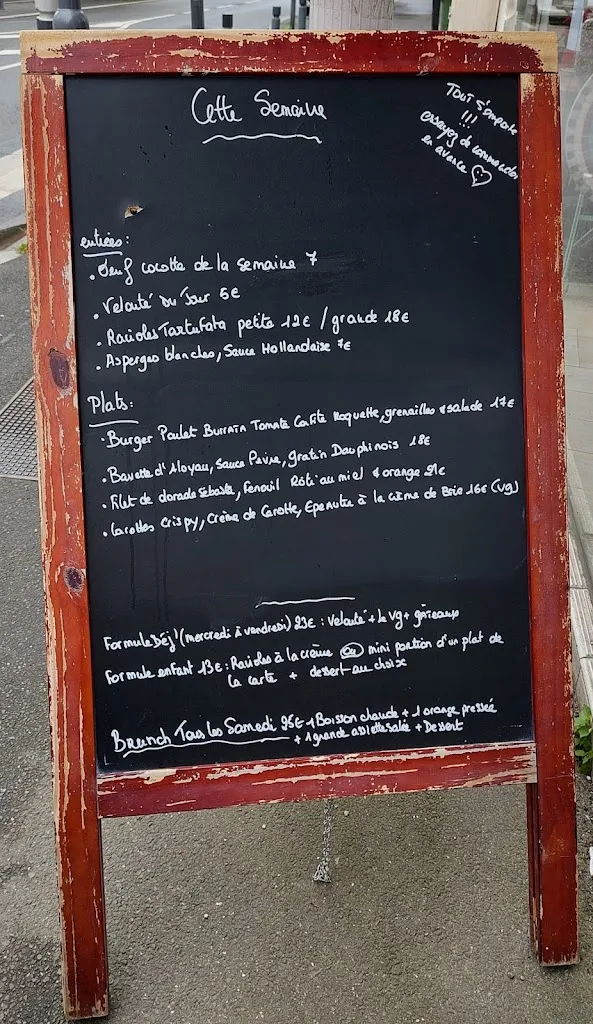 Cette Semaine
Tout s'emporte
!!!
essayez de commander
en avance
entrées:
. Oeuf cocotte de la semaine 7
. Velouté du Jour 5€
. Ravioles Tartufata petite 12€ / grande 18€
. Asperges blanches, Sauce Hollandaise 7€
Plats:
. Burger Poulet Burrata Tomate Confite Roquette, grenailles & salade 17€
. Bavette d'Aloyau, Sauce Poivre, gratin Dauphinois 18€
. Filet de dorade sébaste, Fenouil Rôti au miel & orange 21€
. Carottes crispy, Crème de Carotte, Epeautre à la crème de Brie 16€ (vg)
Formule Déj' (mercredi à vendredi) 23€ : Velouté + le vg + gâteaux
Formule enfant 13€ : Ravioles à la crème ou mini portion d'un plat de
la carte + dessert au choix
Brunch Tous les Samedi 26€ 1 Boisson chaude + 1 orange pressée
+ 1 grande assiette salée + Dessert